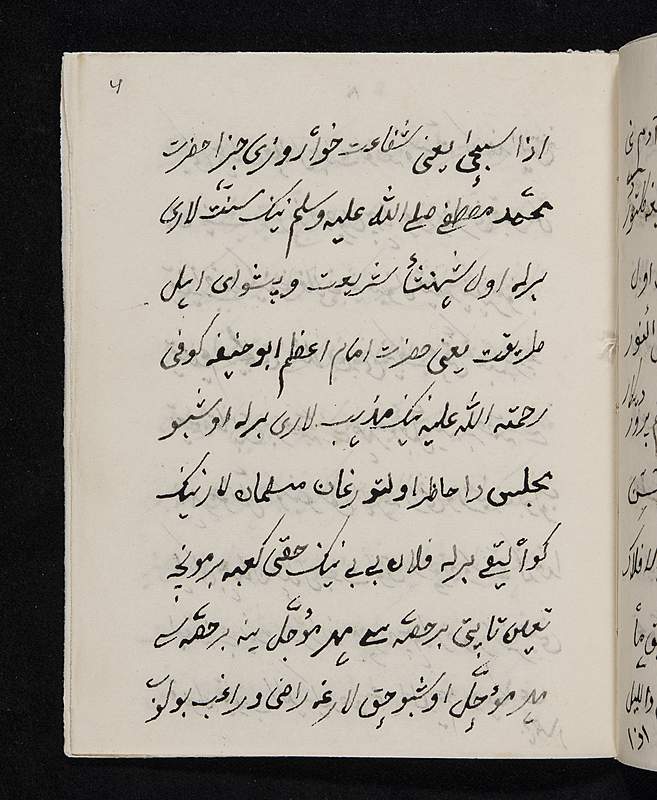 ۶
اذا سجیٰ یعنی شفاعت خواه روزی جزا حضرت
محمّد مصطفی صلی الله علیه وسلم نینک سنّت لاری
برله اول شهنشاه شریعت و پیشوای اهل
طریقت یعنی حضرت امام اعظم ابو حنیفه کوفی
رحمته الله علیه نینک مذهب لاری برله اوشبو
مجلس دا حاظر اولتورغان مسلمان لارنینک
کواه لیقی برله فلان بی بی نینک حقی کعبه برمونچه
تعین تاپتی برحصّه سی مهر مؤجّل ینه برحصّه سی
مهر مؤجّل اوشبو حق لارغه راضی و راغب بولوب